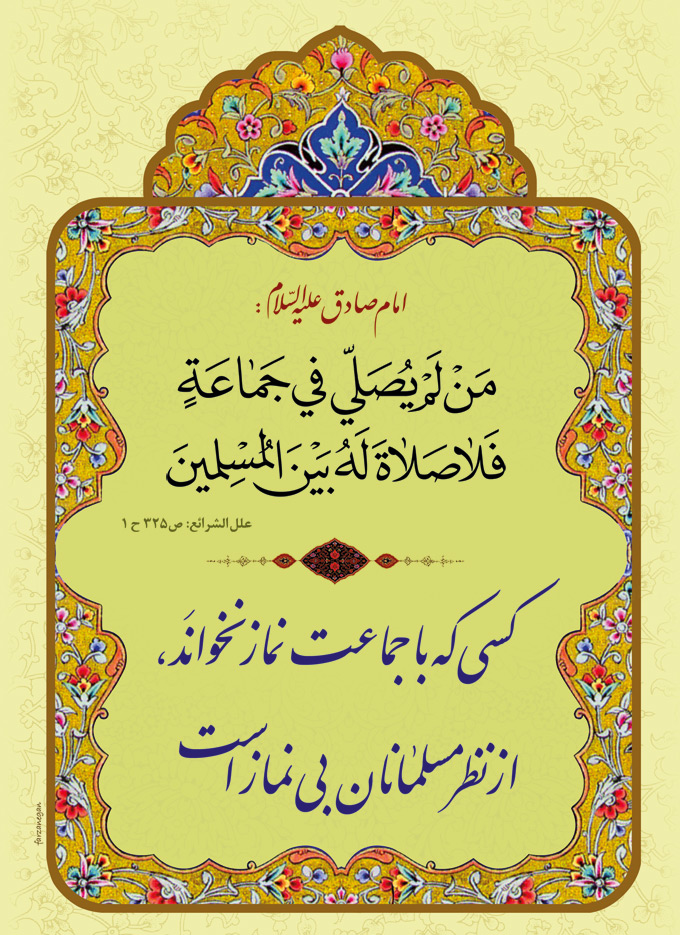 امام صادق علیه السّلام :
مَنْ لَمْ يُصَلّي في جَمٰاعَةٍ
فَلاٰصَلاٰةَ لَهُ بَيْنَ الْمُسْلِمينَ
علل الشرائع: ص۳۲۵ ح ۱
کسی که با جماعت نماز نخوانَد،
از نظر مسلمٰانان بی نماز است
farzanegan